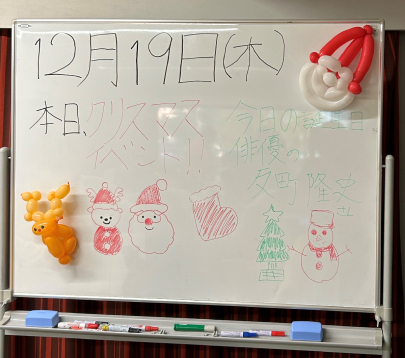 12月19日(木)
本日、クリスマス
イベント!!
今日の誕生日
俳優の
夕町 隆史
さん